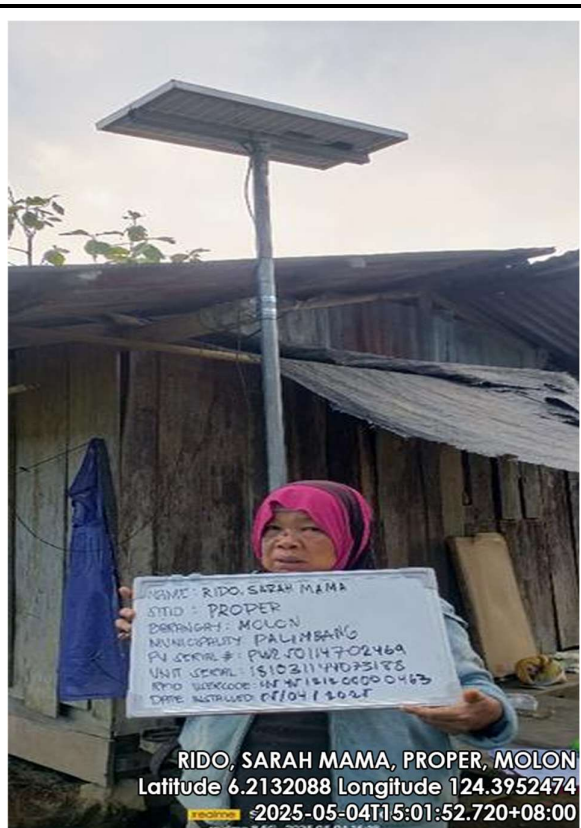 NAME: RIDO, SARAH MAMA
SITIO: PROPER
BARANGAY: MOLON
MUNICIPALITY PALIMBANG
PV SERIAL #: PWR50114702469
UNIT SERIAL: 181031144073188
DATE INSTALLED: 05/04/2025
RIDO, SARAH MAMA, PROPER, MOLON
Latitude 6.2132088 Longitude 124.3952474
realme
2025-05-04T15:01:52.720+08:00